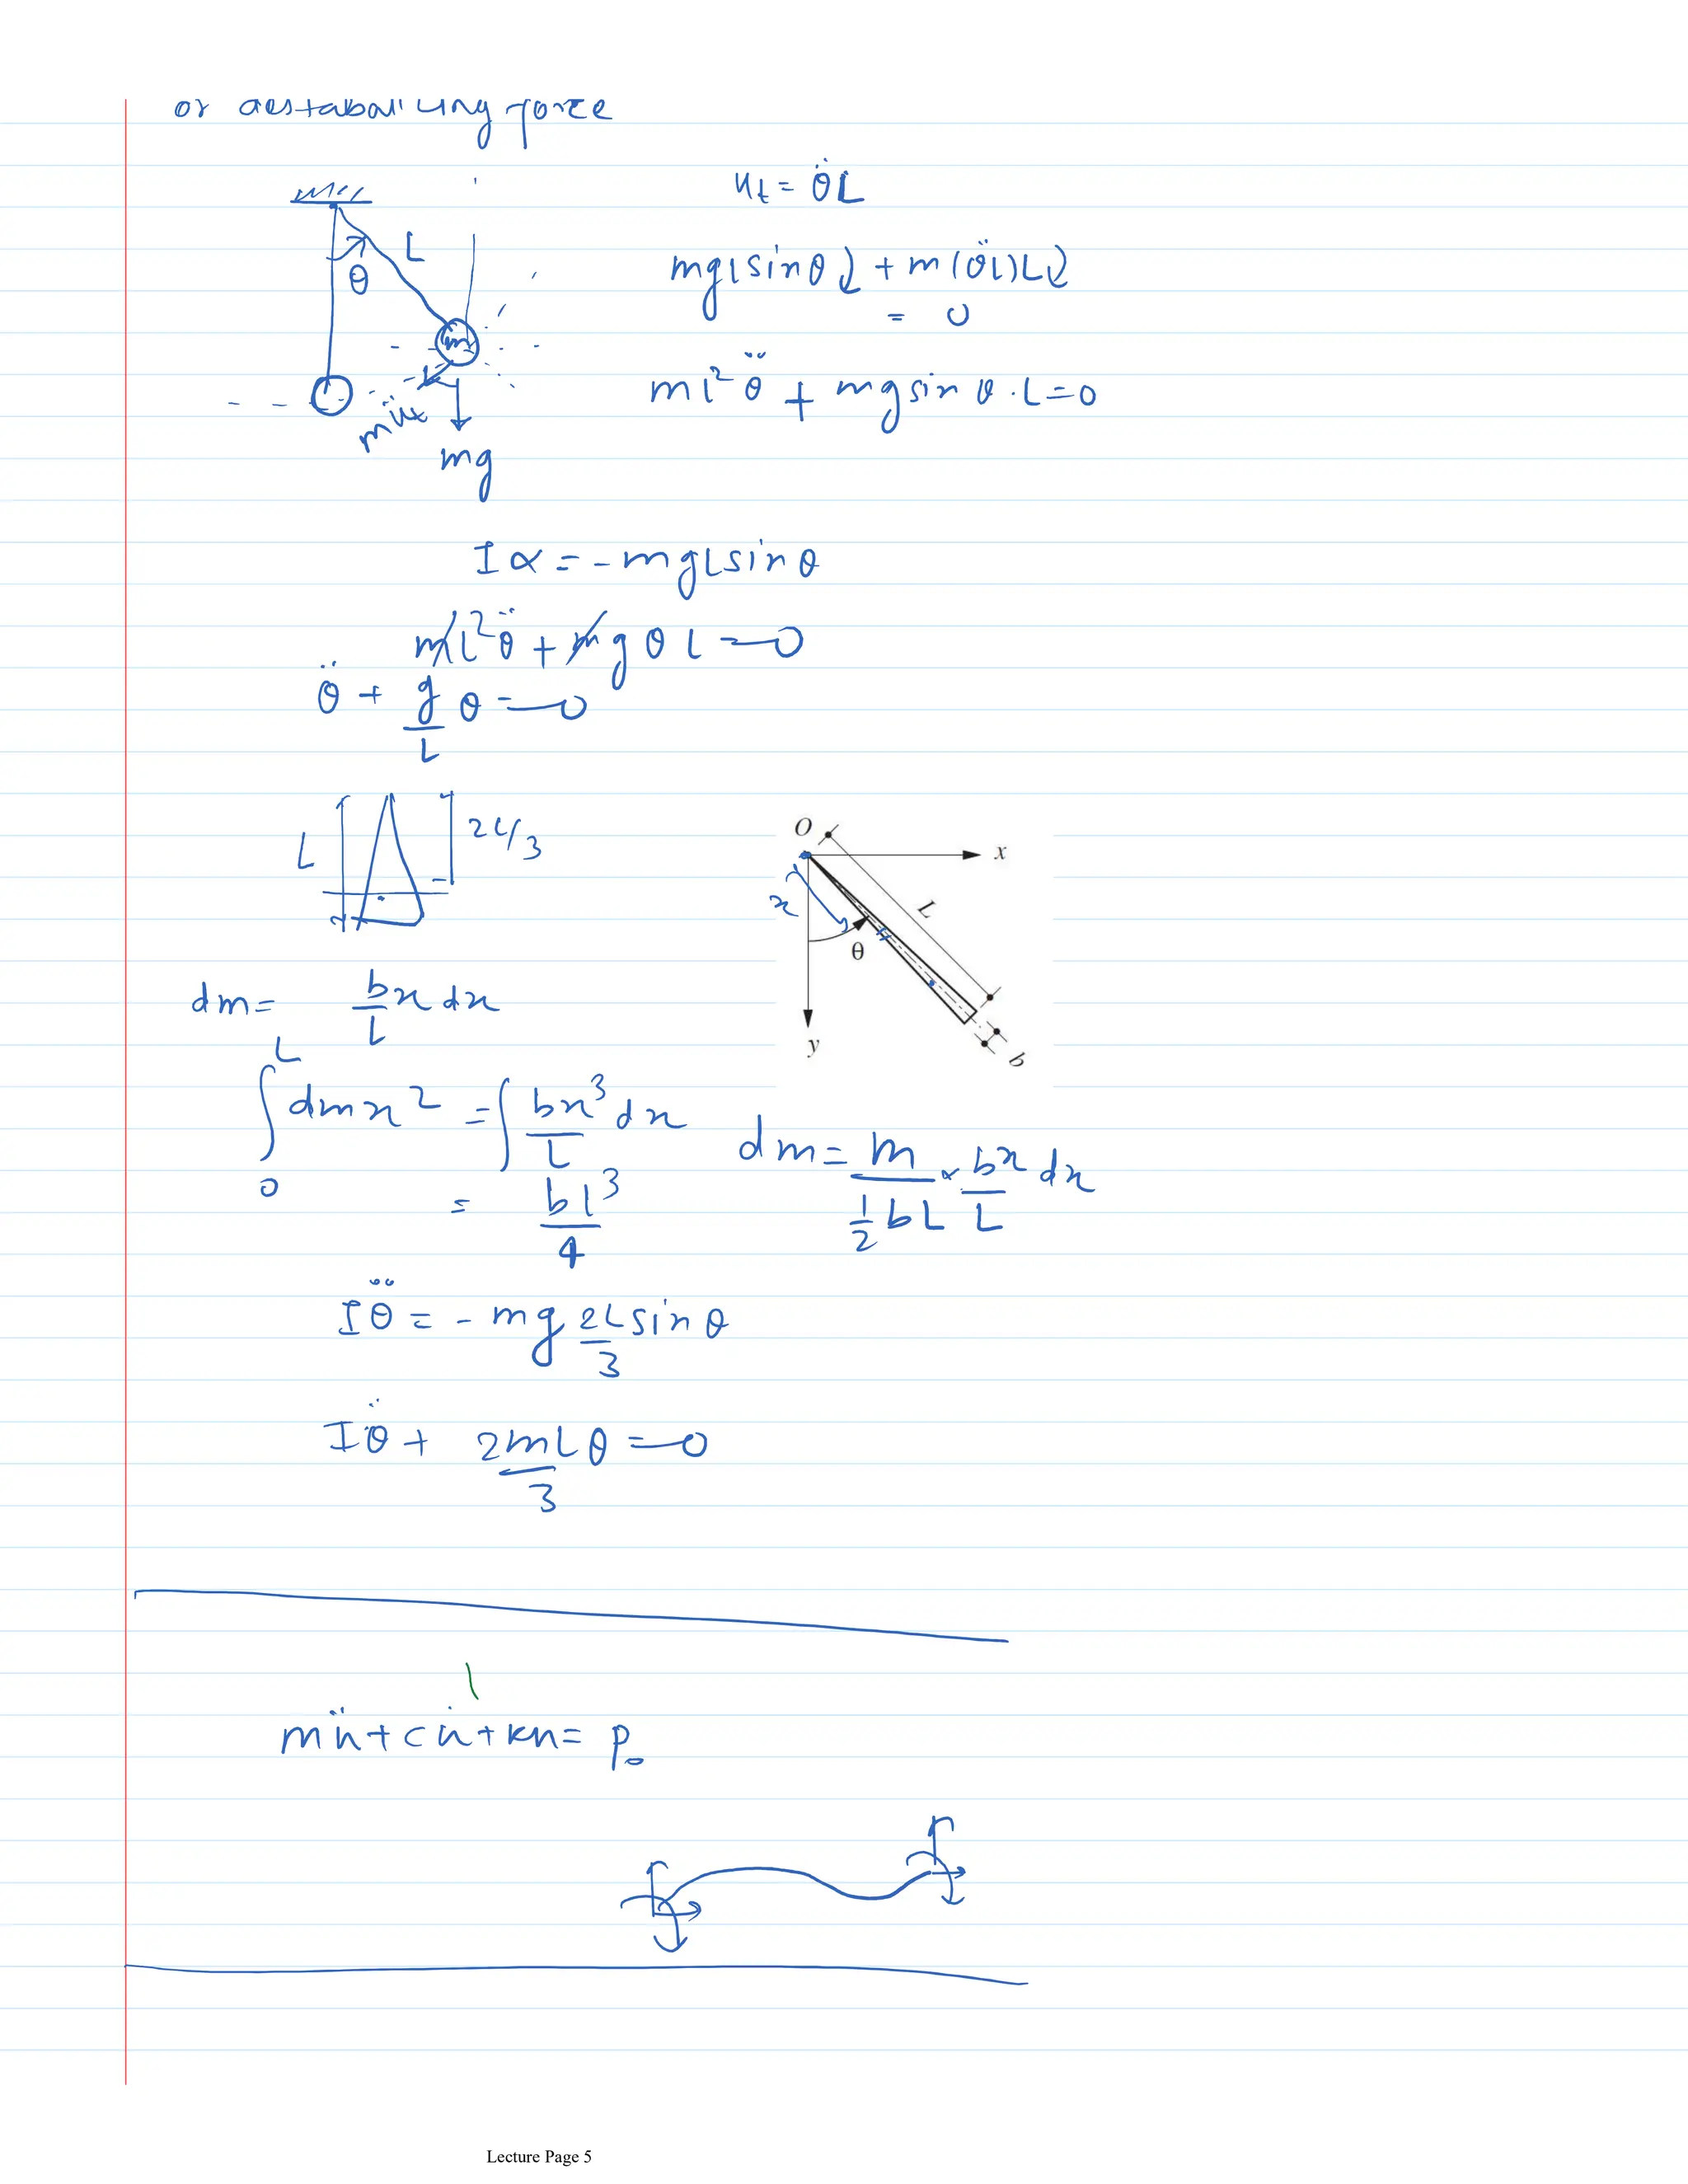 or destabalizing force
üt = θ̈L
L
θ
mg(sinθ)L + m(θ̈L)L
= 0
m
müt
mg
mL²θ̈ + mg sinθ·L = 0
Iα = -mgLsinθ
mL²θ̈ + mgθL = 0
θ̈ + g/L θ = 0
L
2L/3
O
x
x
L
θ
y
b
dm = b/L x dx
∫₀ᴸ dm x² = ∫ bx³/L dx
= bL³/4
dm = m/(½bL) × bx/L dx
Iθ̈ = -mg 2L/3 sinθ
Iθ̈ + 2mL/3 θ = 0
mü + cu̇ + ku = p₀
Lecture Page 5